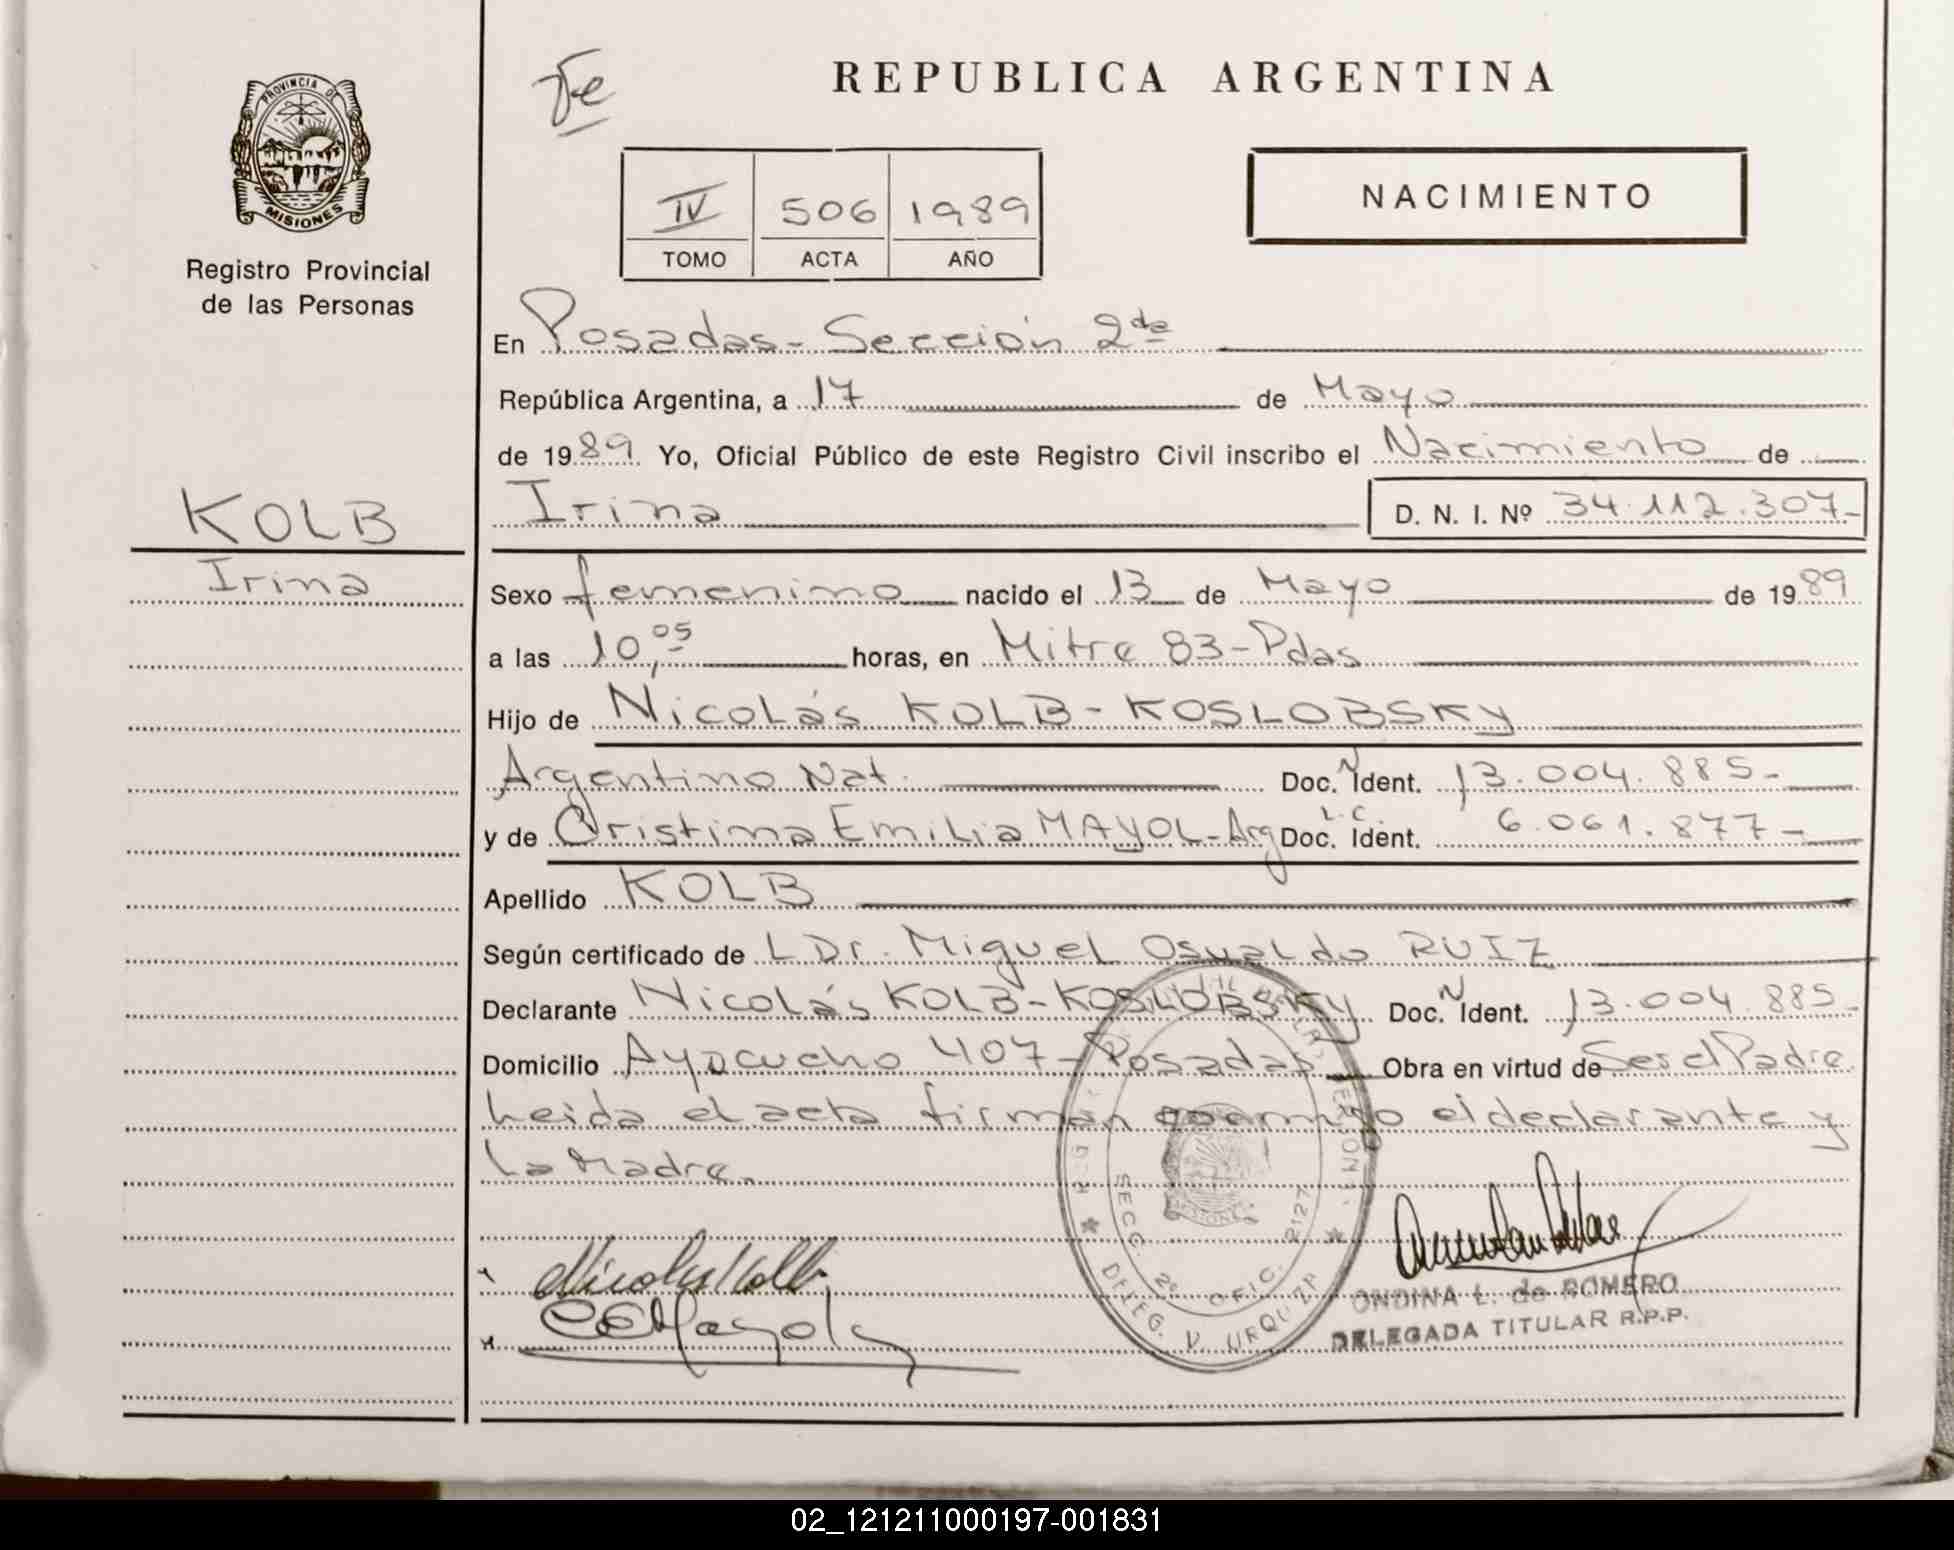 PROVINCIA DE
MISIONES
Registro Provincial
de las Personas
KOLB
Irina
Fe
REPUBLICA ARGENTINA
IV 506 1989
TOMO ACTA AÑO
NACIMIENTO
En Posadas - Sección 2da
República Argentina, a 17 de Mayo
de 1989. Yo, Oficial Público de este Registro Civil inscribo el Nacimiento de
Irina D. N. I. Nº 34.112.307-
Sexo femenino nacido el 13 de Mayo de 1989
a las 10,05 horas, en Mitre 83 - Pdas
Hijo de Nicolás KOLB - KOSLOBSKY
Argentino Nat. Doc. N Ident. 13.004.885-
y de Cristina Emilia MAYOL - Arg Doc. L.C. Ident. 6.061.877-
Apellido KOLB
Según certificado de L Dr. Miguel Osvaldo RUIZ
Declarante Nicolás KOLB - KOSLOBSKY Doc. N Ident. 13.004.885-
Domicilio Ayacucho 407 - Posadas Obra en virtud de Ser el Padre
Leida el acta firman conmigo el declarante y
la Madre.
Nicolas Kolb
CEMayol
SECC. 2º OFIC. 2127
DELEG. V. URQUIZA
MISIONES
ONDINA L. de ROMERO
DELEGADA TITULAR R.P.P.
02_121211000197-001831